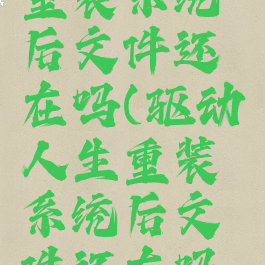 重装系统
后文件还
在吗(驱动
人生重装
系统后文
件还在吗